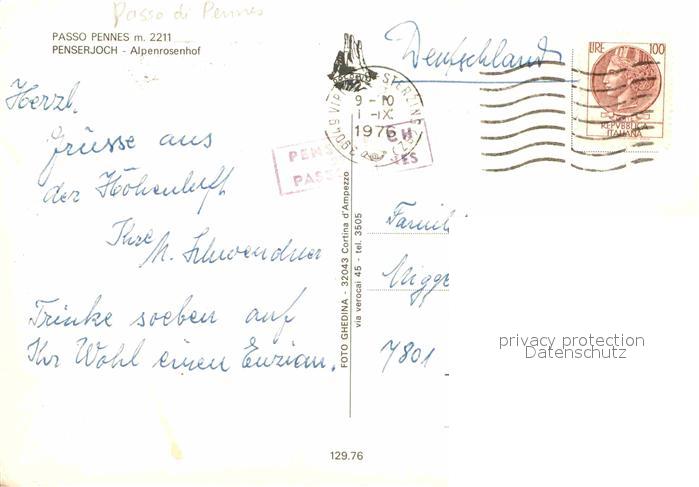 Passo di Pennes
PASSO PENNES m. 2211
PENSERJOCH - Alpenrosenhof
Herzl.
Grüsse aus
der Höhenluft
Ihre
M. Schwendner
Trinke soeben auf
Ihr Wohl einen Enzian.
FOTO GHEDINA - 32043 Cortina d'Ampezzo
via verocai 45 - tel. 3505
129.76
Deutschland
39049 VIP STERZING
9-10
1-IX
1976
PENS CH
PASS ES
LIRE 100
REPVBBLICA
ITALIANA
Famil
Nigge
7801
privacy protection
Datenschutz